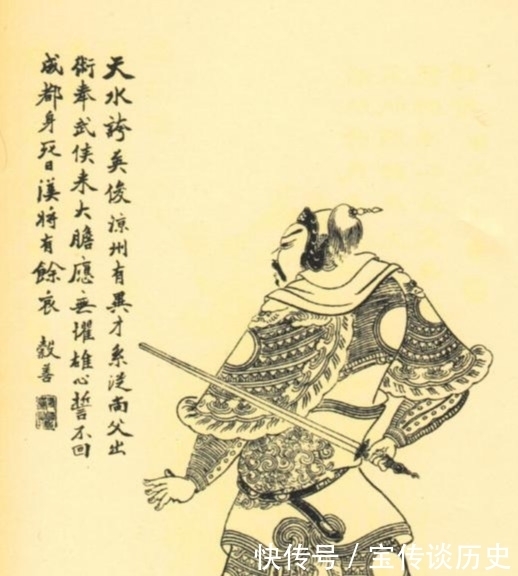 天水誇英俊涼州有異才系從尚父出
術奉武侯来大膽應無懼雄心誓不回
成都身死日漢將有餘哀 穀善
快传号／宝传谈历史